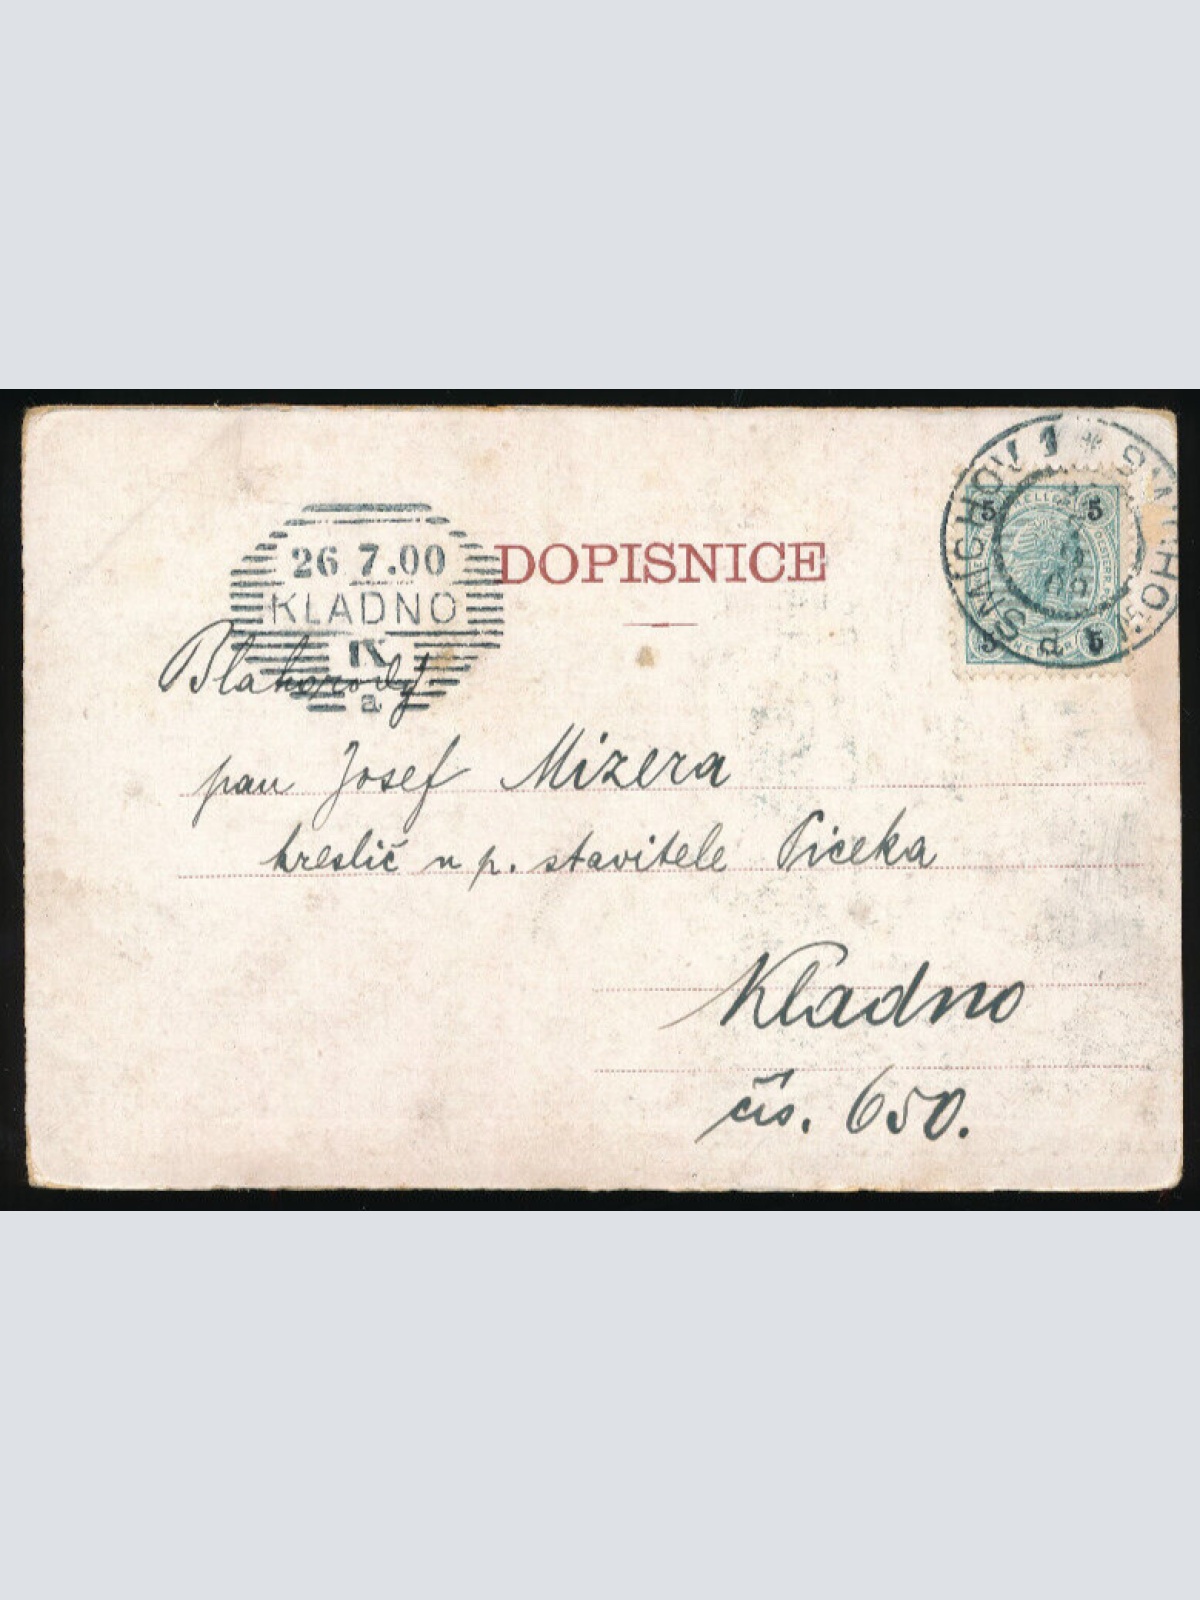 26 7.00
KLADNO
K
a
DOPISNICE
SMICHOV 1 * SMÍCHOV
d
5 HELLER 5
5 5
Blahorodý
pan Josef Mizera
kreslič u p. stavitele Piceka
Kladno
čís. 650.